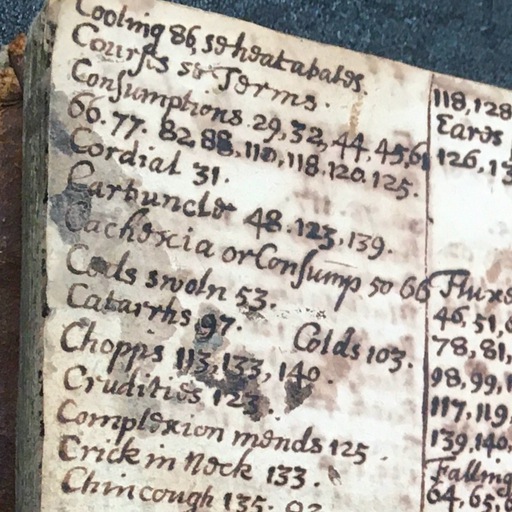 Cooling 86, se heat abates.
Courses se Terms.
Consumptions 29, 32, 44, 45, 61
66. 77. 82, 88, 110, 118. 120. 125.
Cordial 31.
Carbuncle 48. 123, 139.
Cachexia or Consump 50 66
Cods swoln 53.
Catarrhs 97. Colds 103.
Chopps 113, 133, 140.
Crudities 123.
Complexion mends 125.
Crick in Neck 133.
Chincough 135.
118, 128
Eares
126, 13
Fluxes
46, 51, 6
78, 81,
98, 99, 1
117, 119
139, 140,
Falling
64, 65, 6